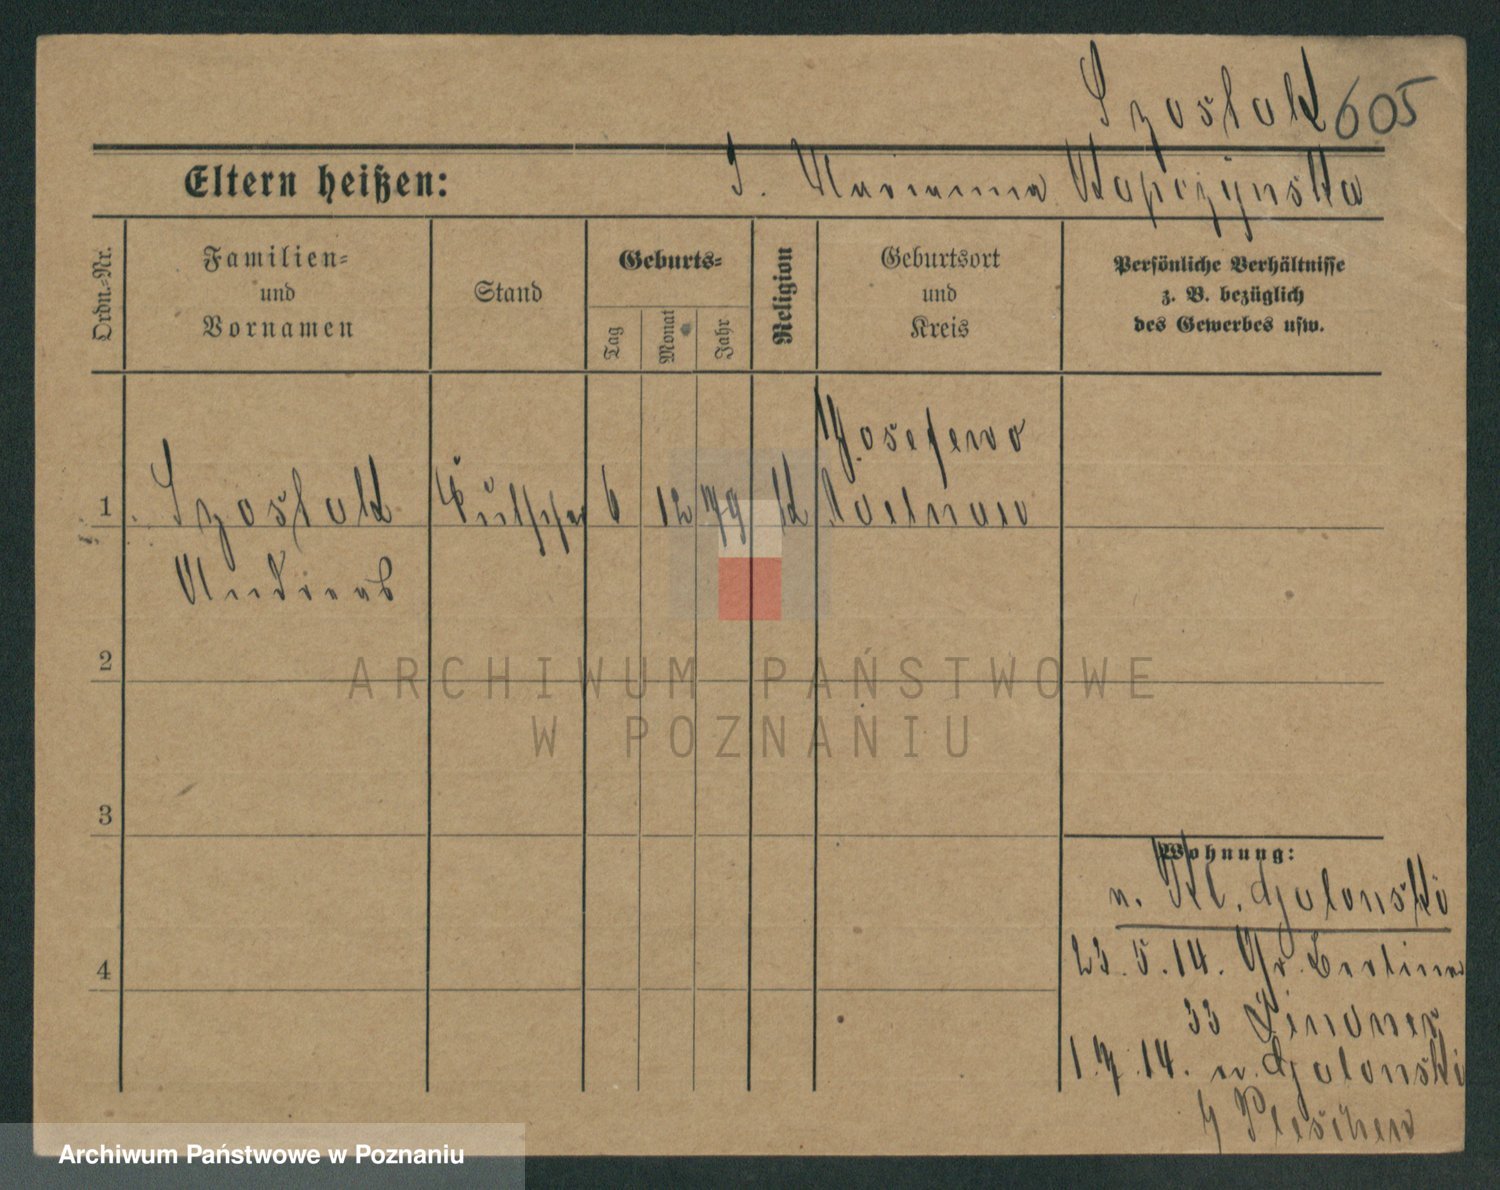 Szostak 605
Eltern heißen: T. Marianna Kopczynska
Ordn.-Nr.
Familien-
und
Vornamen
Stand
Geburts-
Tag
Monat
Jahr
Religion
Geburtsort
und
Kreis
Persönliche Verhältnisse
z. B. bezüglich
des Gewerbes usw.
Josefowo
1 Szostak 6 12 79 K
Andreas
2
ARCHIWUM PAŃSTWOWE
W POZNANIU
3
Wohnung:
n.
4
23.5.14. Gr. Berliner
33
1.7.14. n.
Pleschen
Archiwum Państwowe w Poznaniu